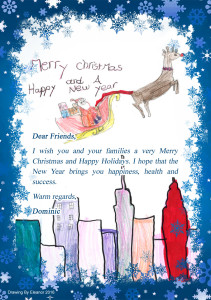 Merry christmas
and A
Happy New year
Dear Friends,
I wish you and your families a very Merry
Christmas and Happy Holidays. I hope that the
New Year brings you happiness, health and
success.
Warm regards,
Dominic
Drawing By Eleanor 2015